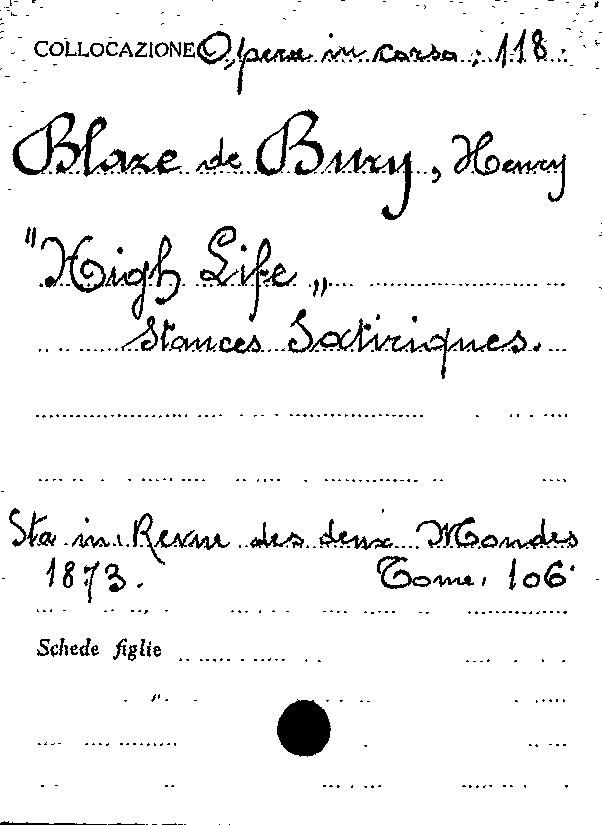 COLLOCAZIONE Opera in corso: 118.
Blaze de Bury, Henry
"High Life„
Stances Satiriques.
Sta in: Revue des deux Mondes
1873. Tome. 106.
Schede figlie
"